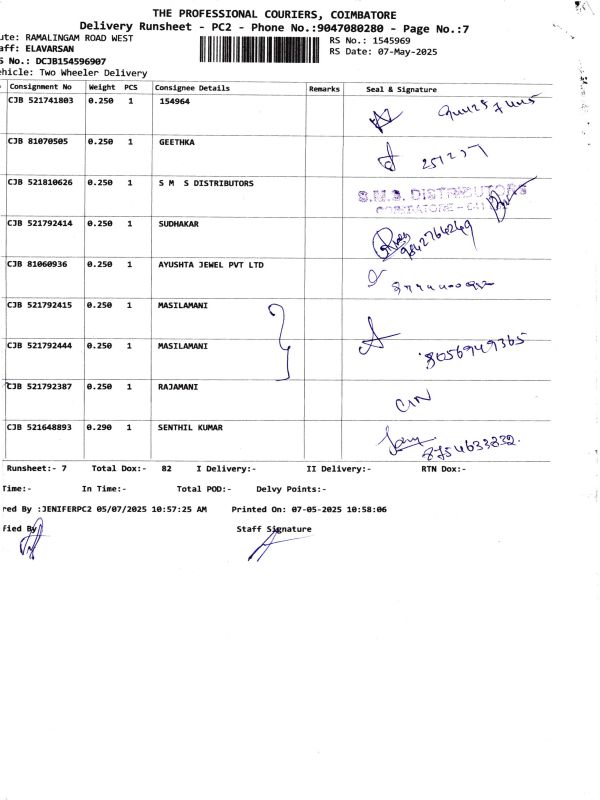 THE PROFESSIONAL COURIERS, COIMBATORE
Delivery Runsheet - PC2 - Phone No.:9047080280 - Page No.:7
ute: RAMALINGAM ROAD WEST
RS No.: 1545969
aff: ELAVARSAN
RS Date: 07-May-2025
S No.: DCJB154596907
ehicle: Two Wheeler Delivery
Consignment No Weight PCS Consignee Details Remarks Seal & Signature
CJB 521741803 0.250 1 154964
CJB 81070505 0.250 1 GEETHKA
CJB 521810626 0.250 1 S M S DISTRIBUTORS S.M.S. DISTRIBUTORS
COIMBATORE - 641
CJB 521792414 0.250 1 SUDHAKAR 9842764249
CJB 81060936 0.250 1 AYUSHTA JEWEL PVT LTD
CJB 521792415 0.250 1 MASILAMANI
CJB 521792444 0.250 1 MASILAMANI 8056949365
CJB 521792387 0.250 1 RAJAMANI
CJB 521648893 0.290 1 SENTHIL KUMAR 8754633832.
Runsheet:- 7 Total Dox:- 82 I Delivery:- II Delivery:- RTN Dox:-
Time:- In Time:- Total POD:- Delvy Points:-
red By :JENIFERPC2 05/07/2025 10:57:25 AM Printed On: 07-05-2025 10:58:06
fied By Staff Signature